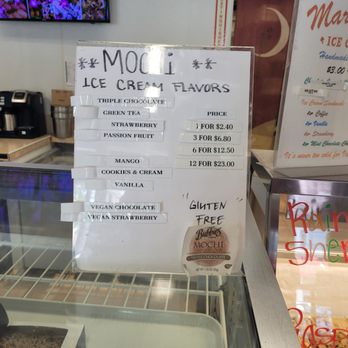 ** MOCHI **
ICE CREAM FLAVORS
TRIPLE CHOCOLATE
GREEN TEA
STRAWBERRY
PASSION FRUIT
MANGO
COOKIES & CREAM
VANILLA
VEGAN CHOCOLATE
VEGAN STRAWBERRY
PRICE
1 FOR $2.40
3 FOR $6.80
6 FOR $12.50
12 FOR $23.00
"GLUTEN
FREE"
Bubbies
MOCHI
Mar
* ICE
Handmade
$3.00
Ice Cream Sandwich
Coffee
Vanilla
Strawberry
Mint Chocolate Ch
It's never too cold for